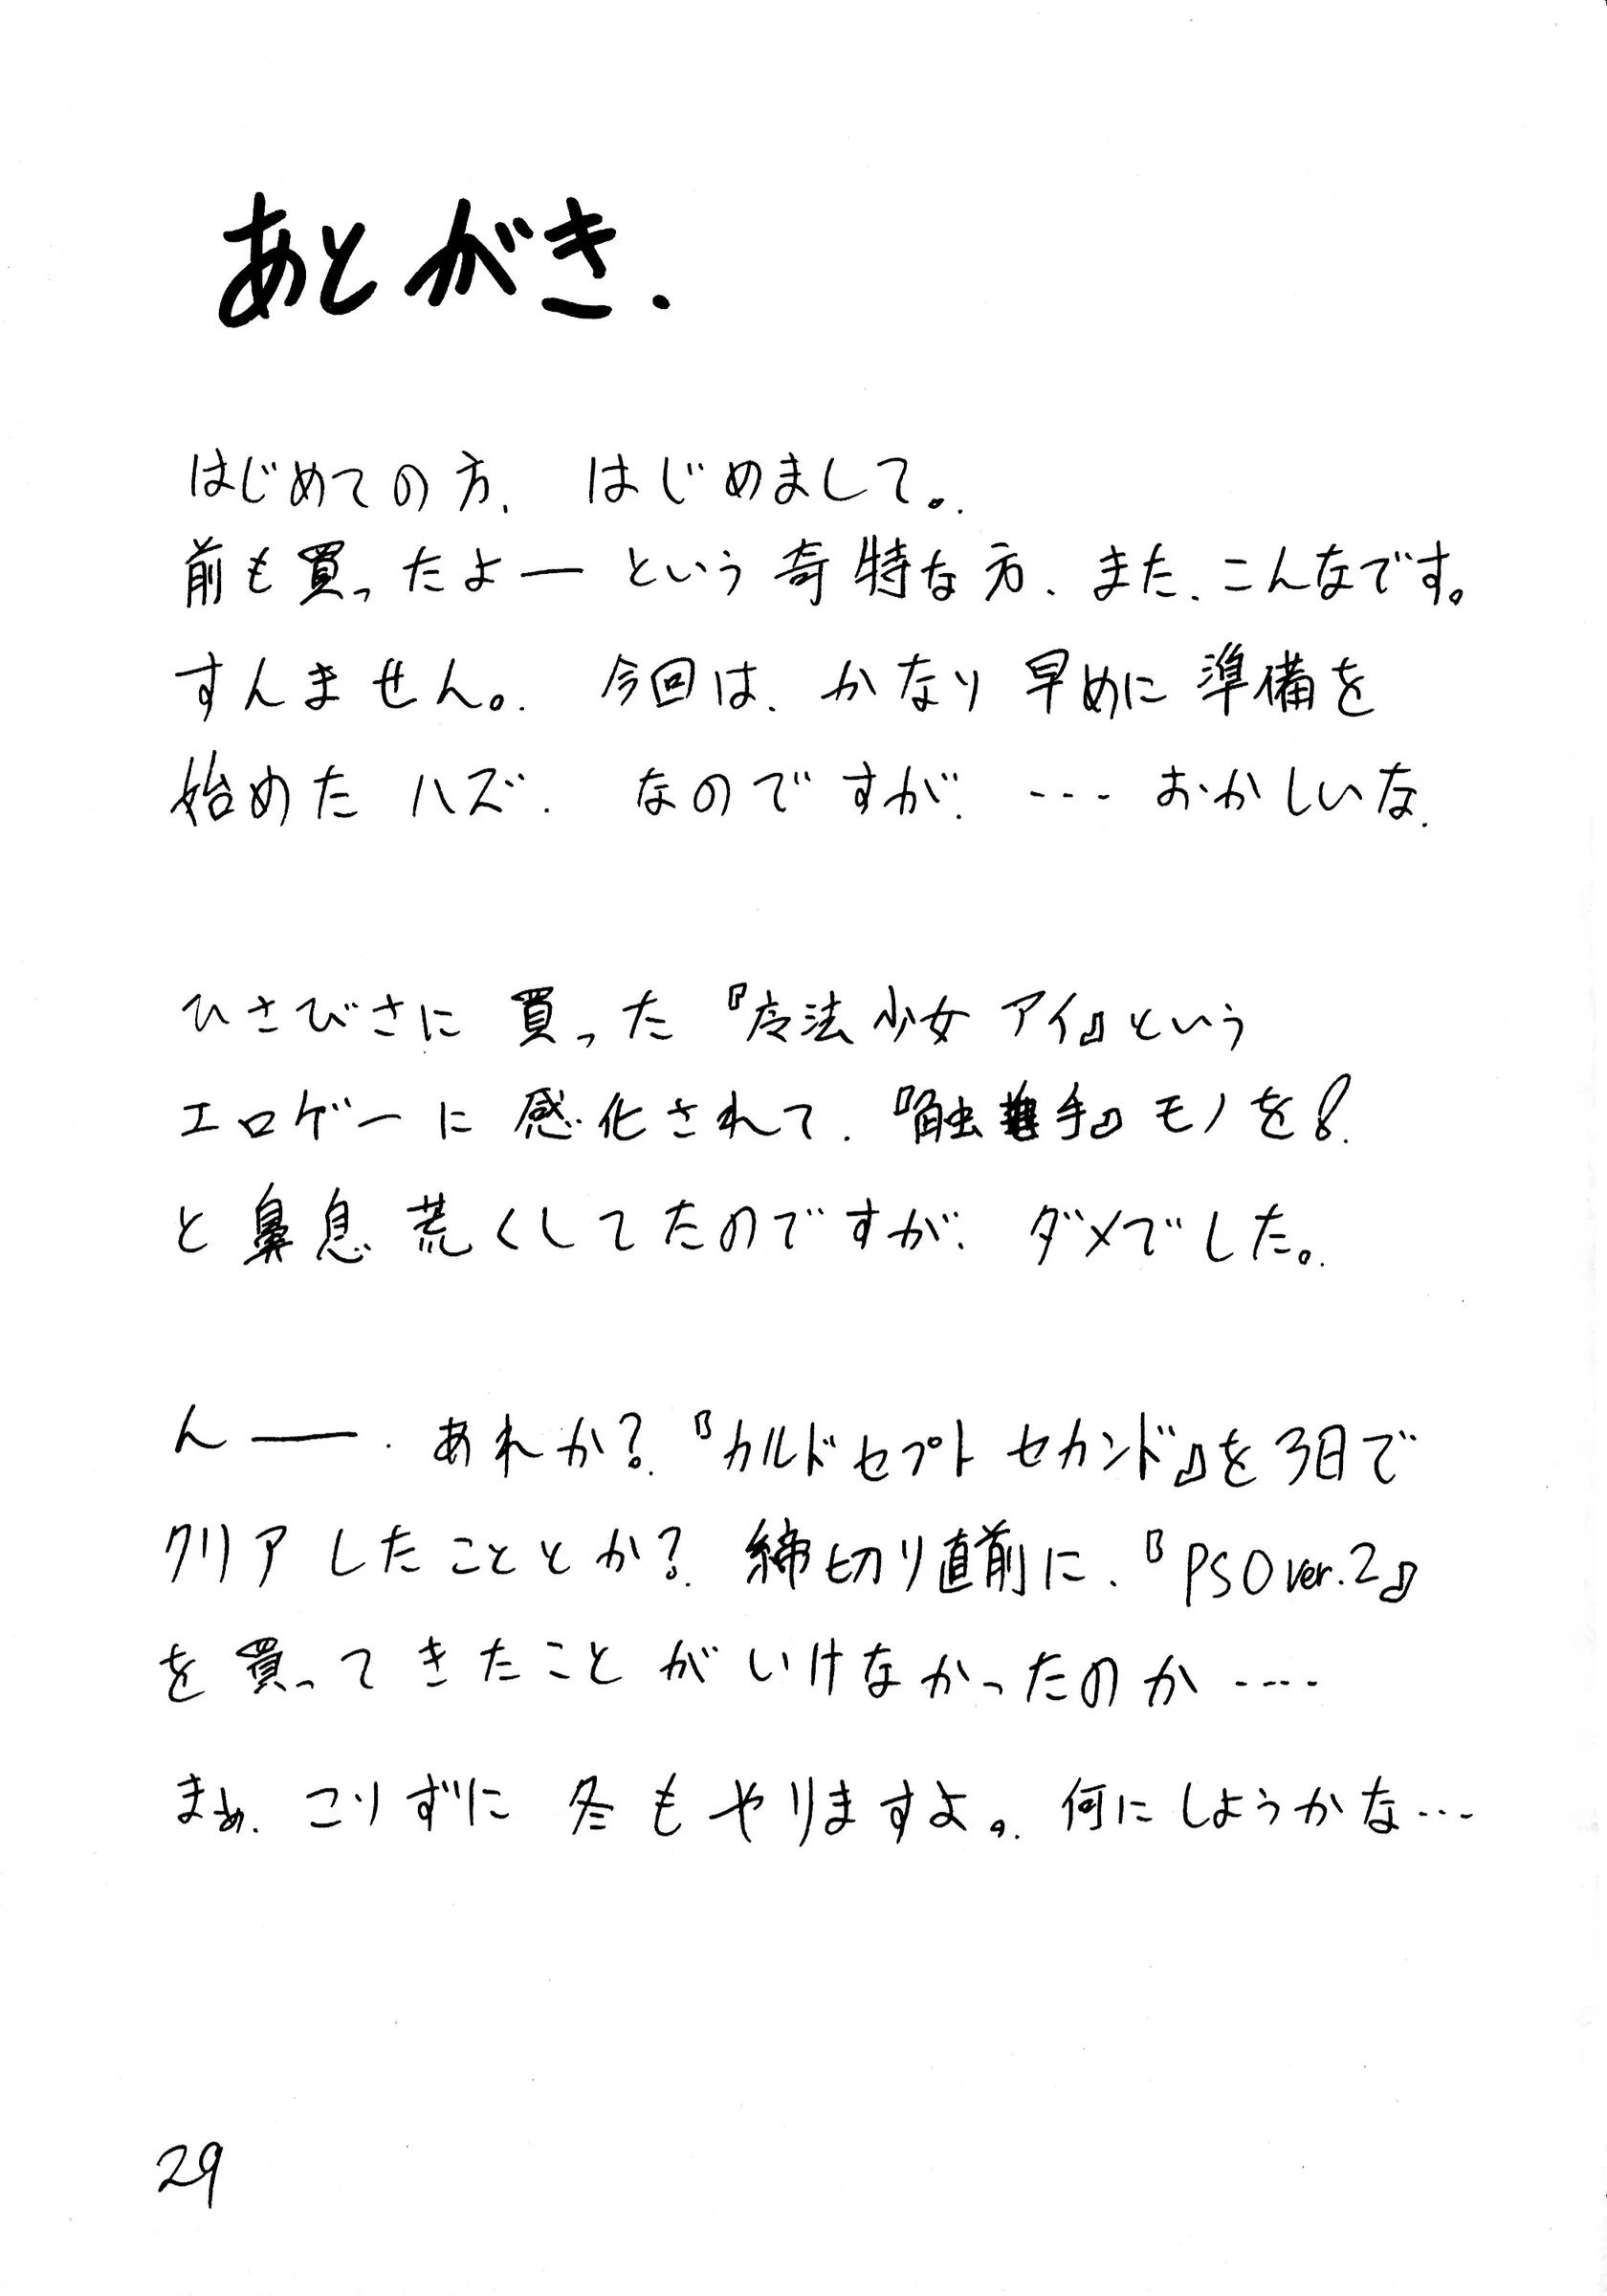 あとがき.
はじめての方、はじめまして。
前も買ったよーという奇特な方、また、こんなです。
すんません。今回は、かなり早めに準備を
始めたハズ、なのですが、・・・おかしいな.
ひさびさに買った『魔法少女アイ』という
エロゲーに感化されて、『触手』モノを!
と鼻息荒くしてたのですが、ダメでした。
んー、あれか?『カルドセプトセカンド』を3日で
クリアしたこととか?締切り直前に、『PSO ver.2』
を買ってきたことがいけなかったのか・・・・
まぁ、こりずに冬もやりますよ。何にしようかな・・・
29